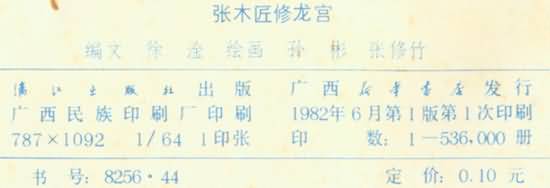 张木匠修龙宫
编文 徐淦 绘画 孙彬 张修竹
漓江出版社出版 广西新华书店发行
广西民族印刷厂印刷 1982年6月第1版第1次印刷
787×1092 1/64 1印张 印数：1—536,000册
书号：8256·44 定价：0.10元